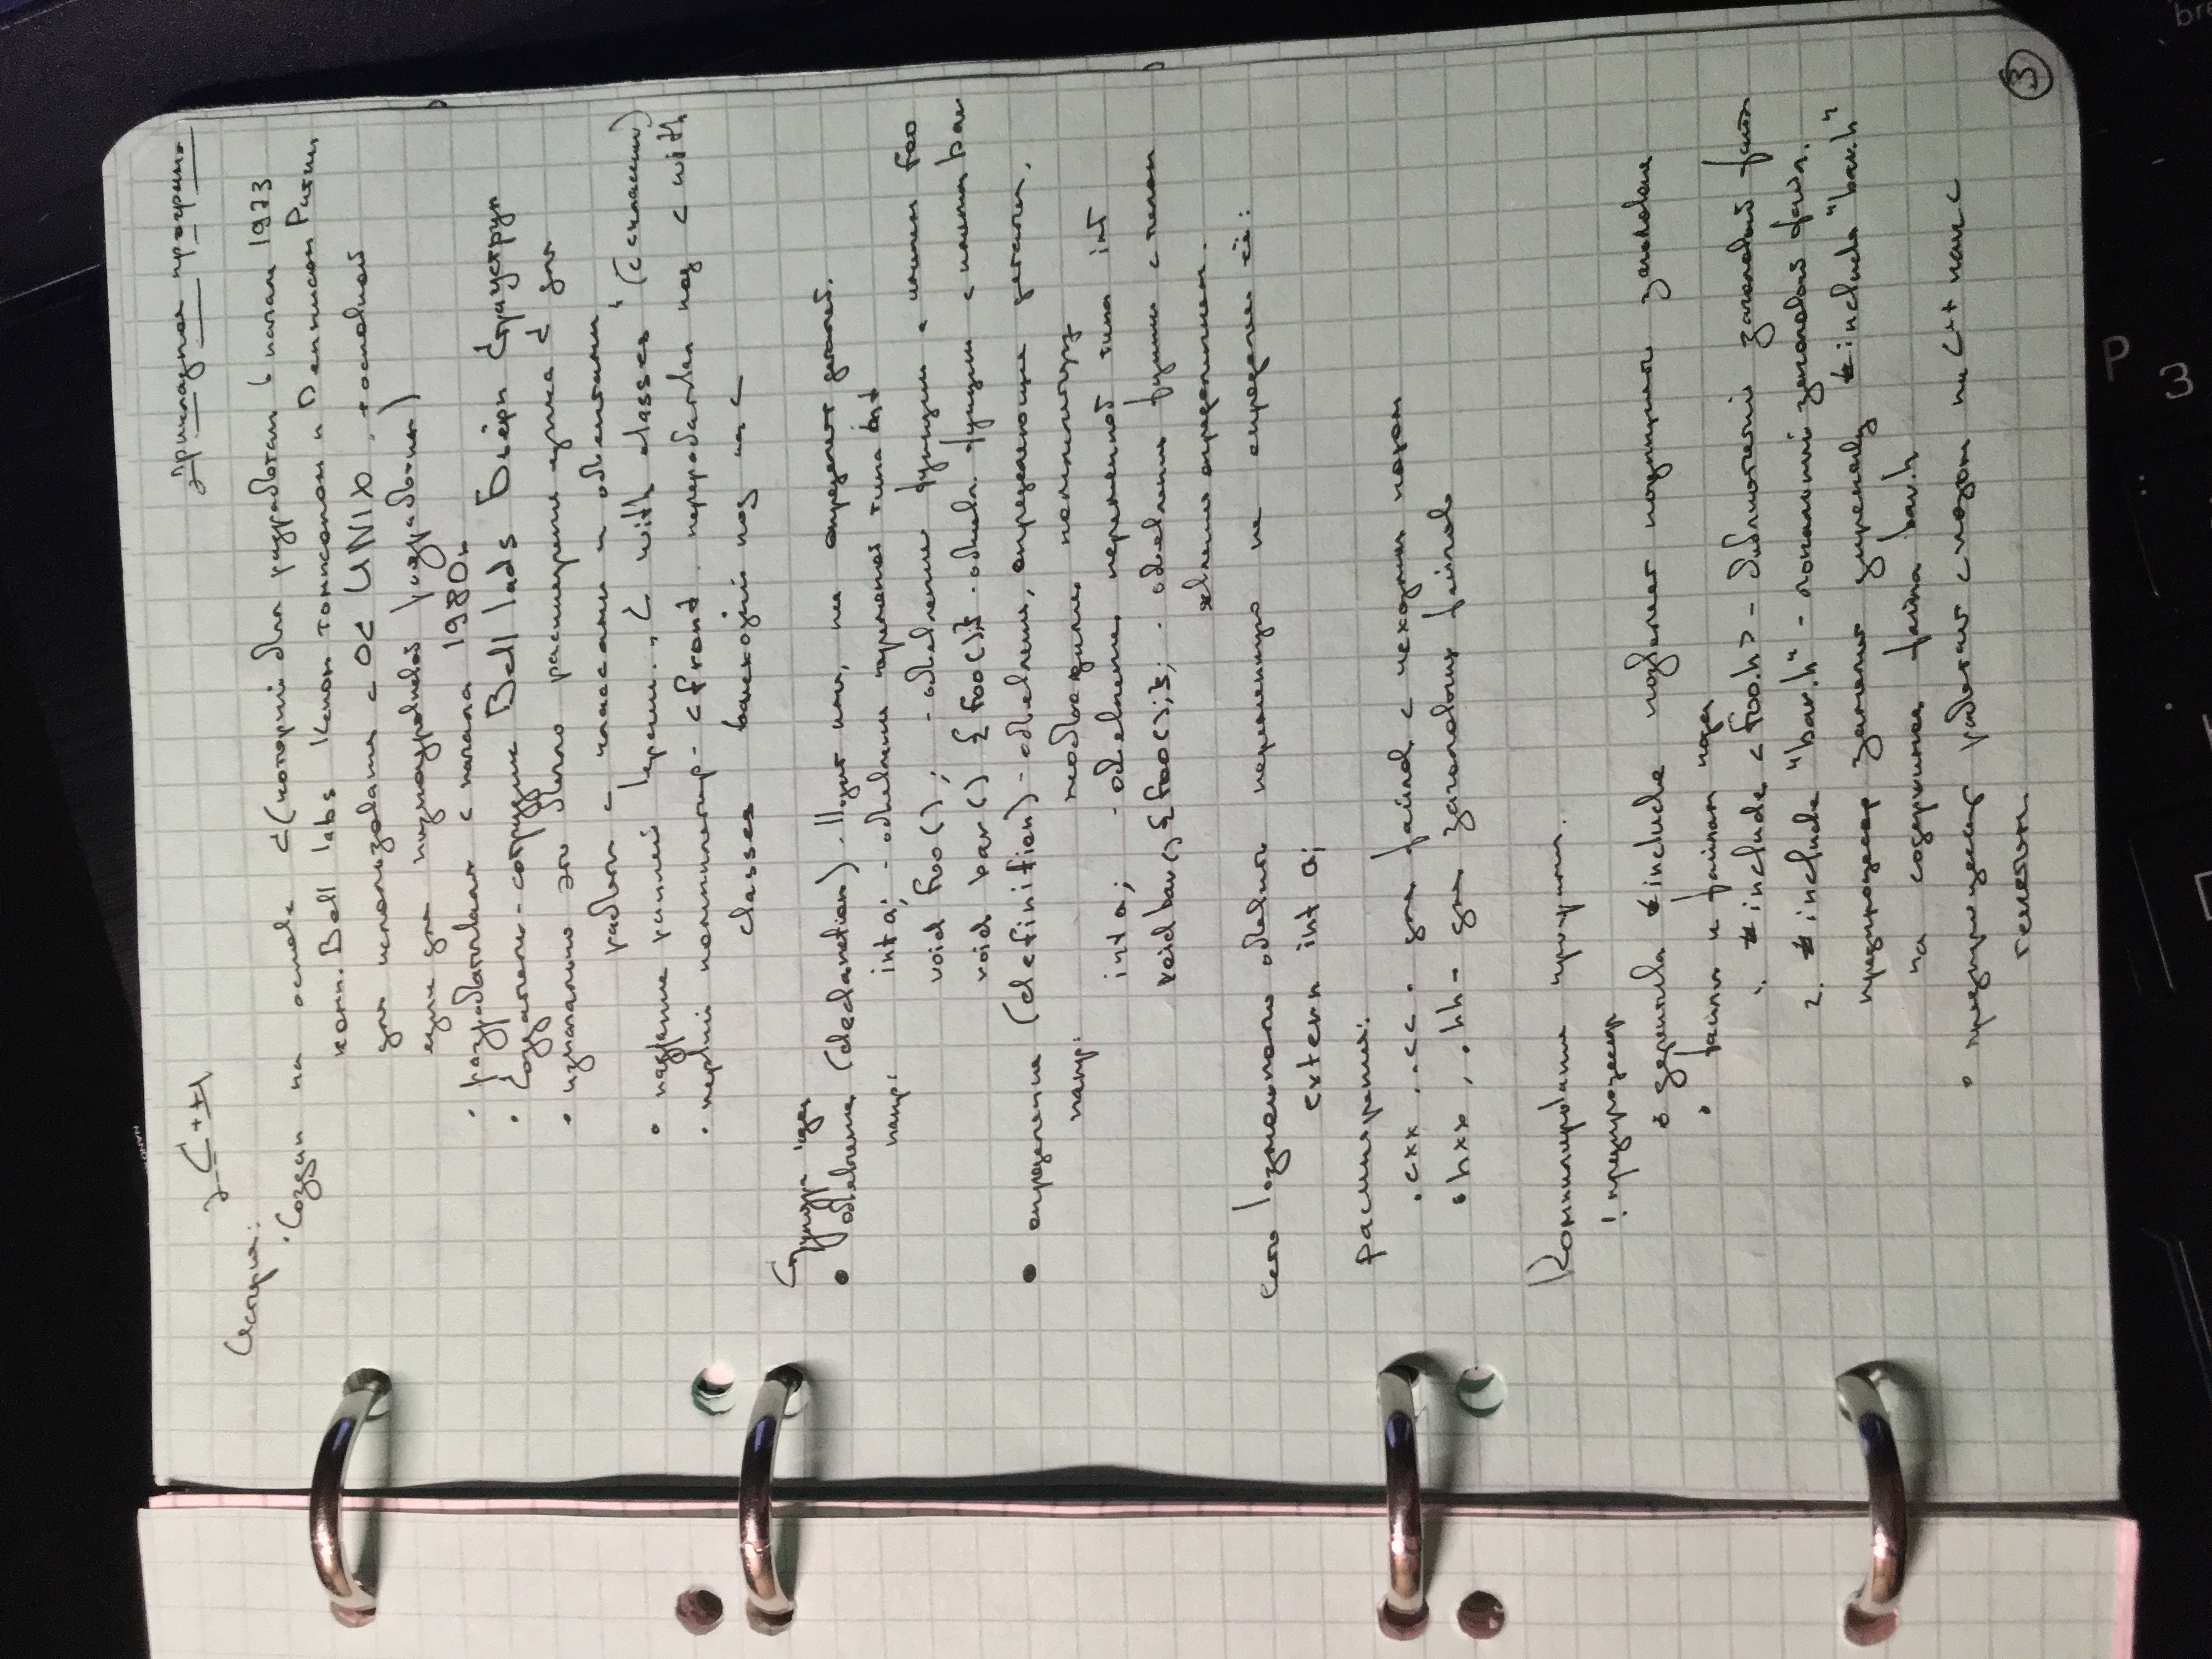 Прикладное програм.
C++
История:
· Создан на основе C (который был разработан в начале 1973
комп. Bell labs Кеном томпсоном и Деннисом Ритчи
для использования с ОС UNIX, основной
язык для низкоуровневой разработки)
· разрабатывался с начала 1980х
· Создатель - сотрудник Bell lads Бьёрн Страуструп
· изначально это было расширение языка C для
работы с классами и объектами
· название ранней версии. „C with classes" (C с классами)
· первый компилятор - cfront. переработал код C with
classes в исходный код на C
Структура кода
• объявление (declaration) - имя, не определяет деталей.
напр: int a; - объявление переменной типа int
void foo(); - объявление функции с именем foo
void bar() { foo();} - объявл. функции с именем bar
• определение (definition) - объявление, определяющие детали,
напр: необходимые компилятору
int a; - объявление переменной типа int
void bar() { foo(); }; - объявление функции с телом
явление определением.
есть возможность объявить переменную не определяя её:
extern int a;
расширения:
.cxx, .cc - для файлов с исходным кодом
.hxx, .hh - для заголовочных файлов
Компилирование программ.
! предпроцессор
· деректива #include позволяет подключать заголовочные
· файлы к файлам кода
1. #include <foo.h> - библиотечный заголовочный файл
2. #include "bar.h" - локальный заголовочный файл.
предпроцессор заменит директиву #include "bar.h"
на содержимое файла bar.h
· предпроцессор работает с кодом на C++ как с
текстом.
3
P
З